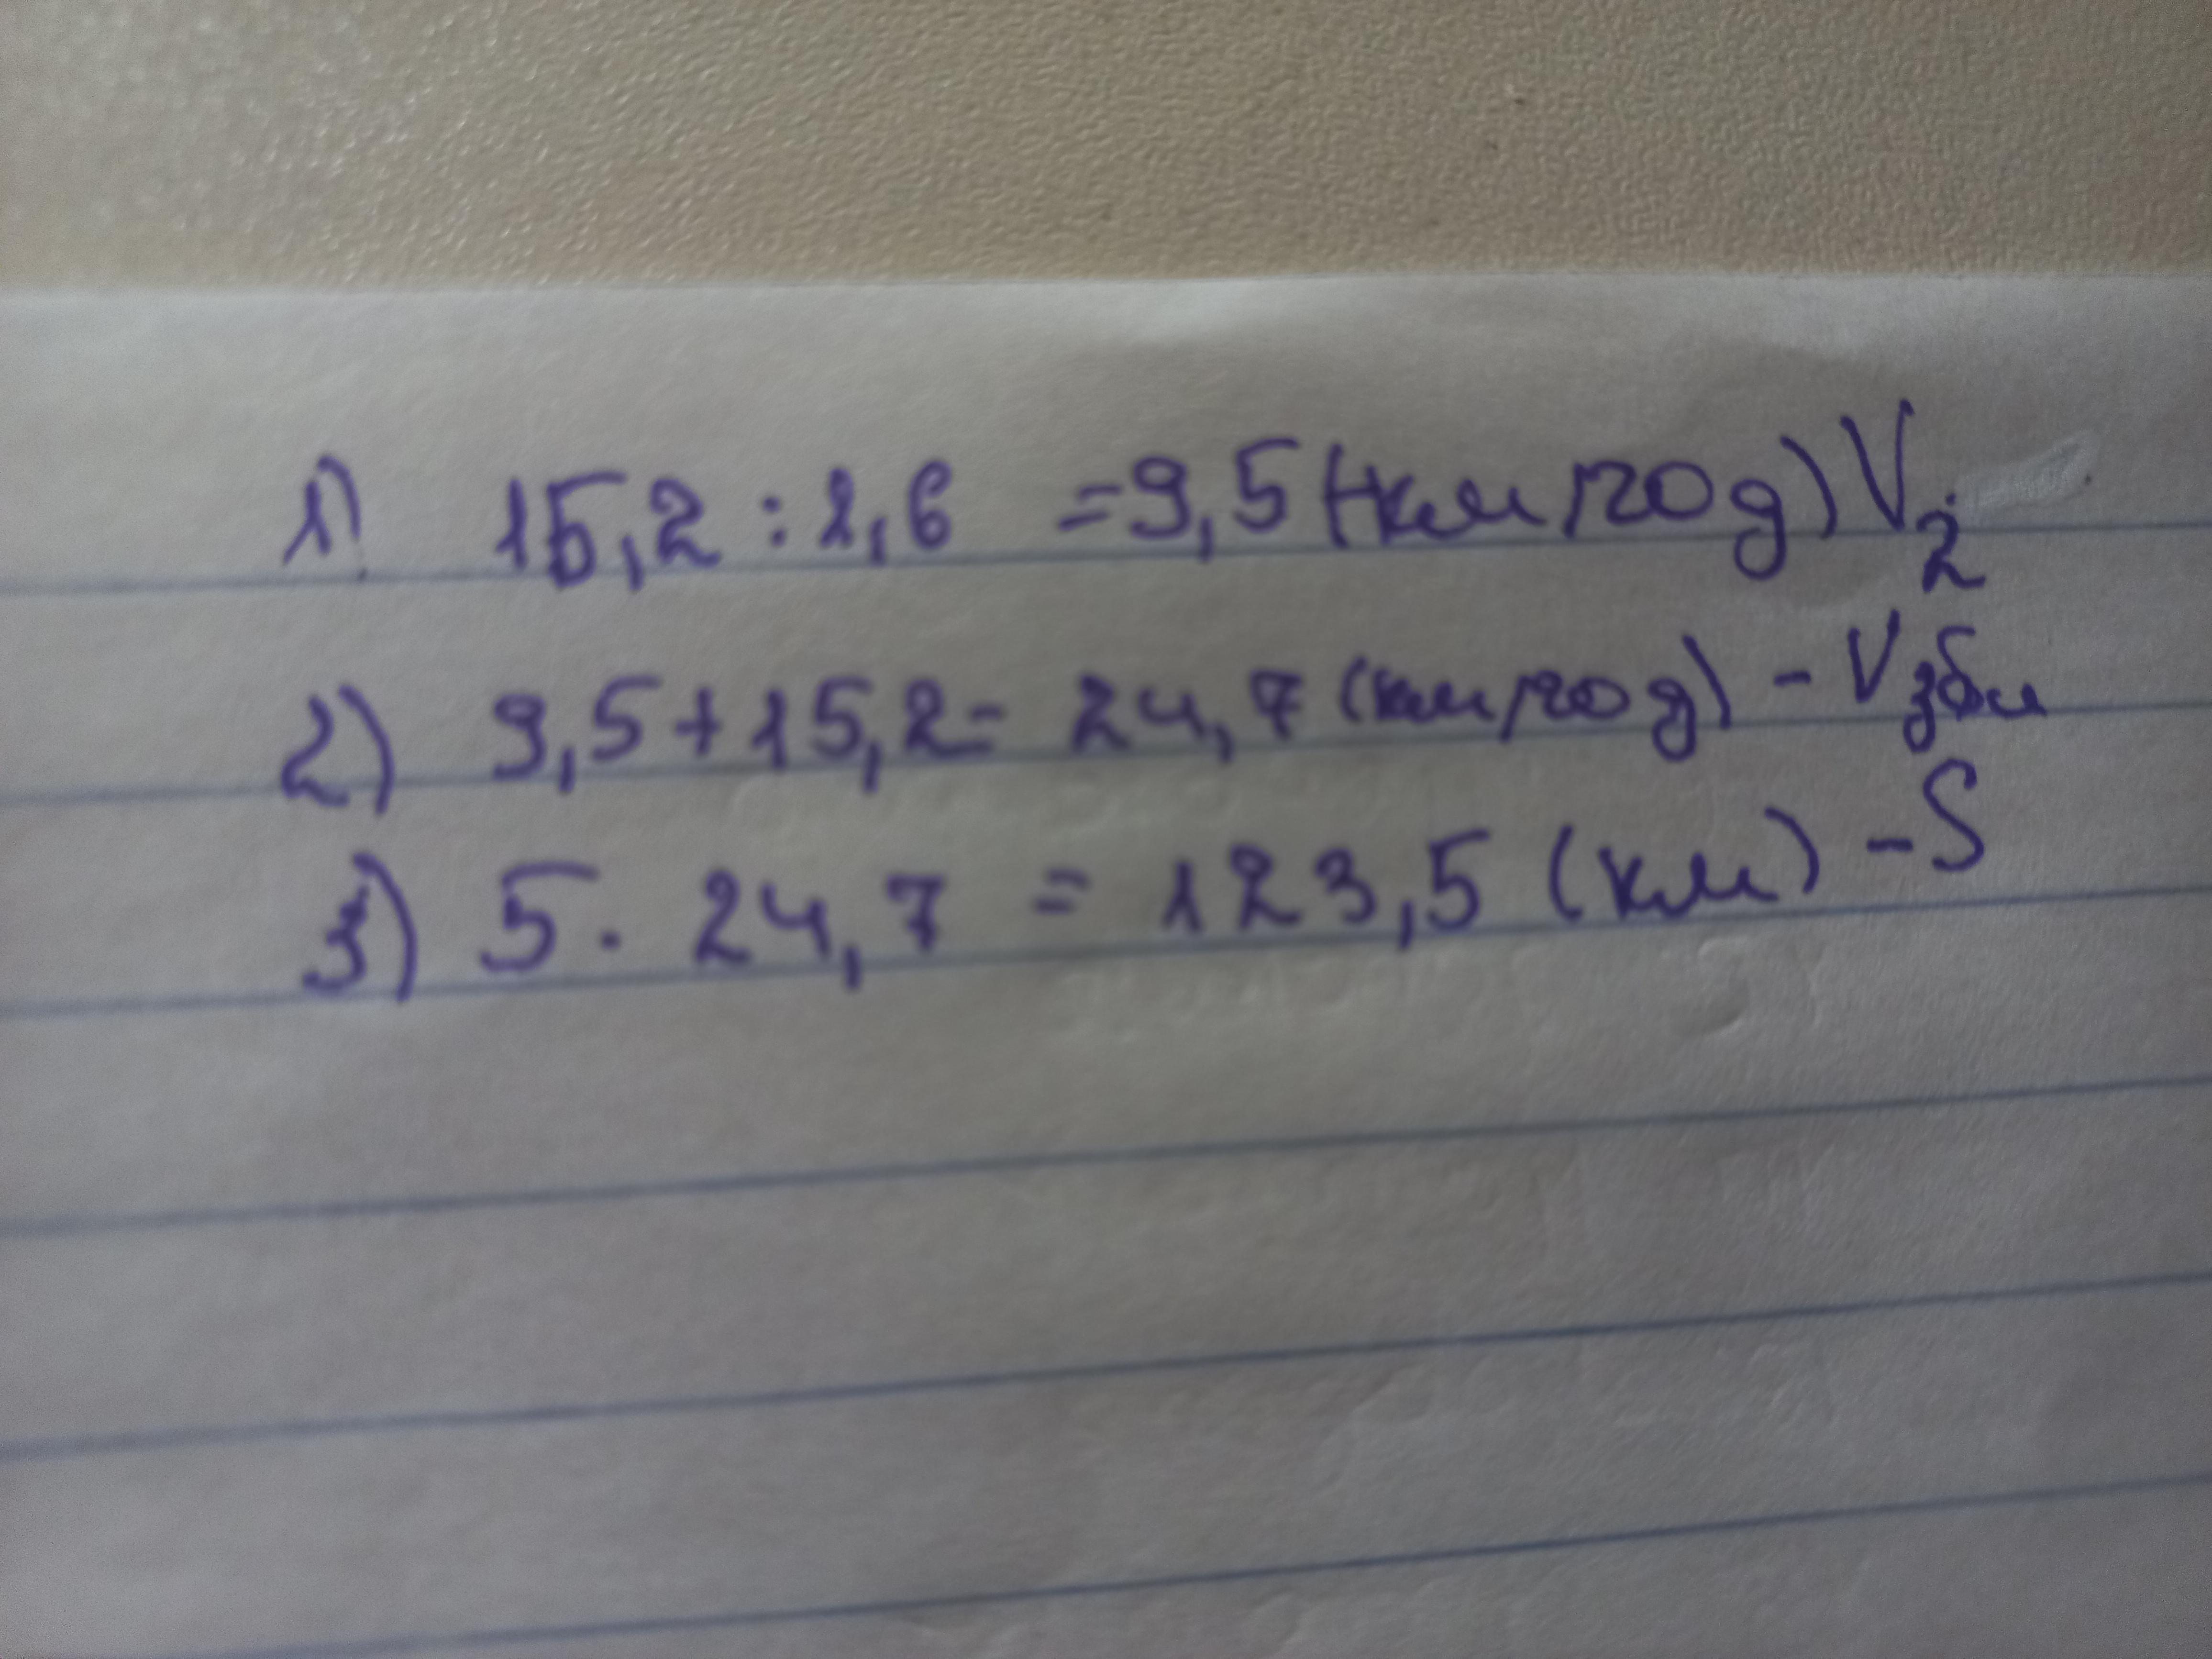 1) 15,2 : 1,6 = 9,5 (км/год) V₂
2) 9,5 + 15,2 = 24,7 (км/год) - Vзбл
3) 5 · 24,7 = 123,5 (км) - S